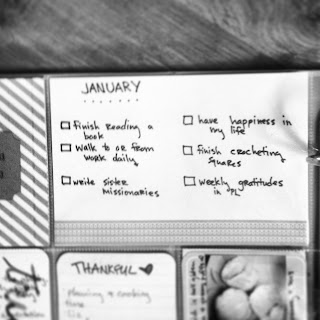 JANUARY
finish reading a
book
walk to or from
work daily
write sister
missionaries
have happiness in
my life
finish crocheting
squares
weekly gratitudes
in PL
THANKFUL
Planning & cooking
time